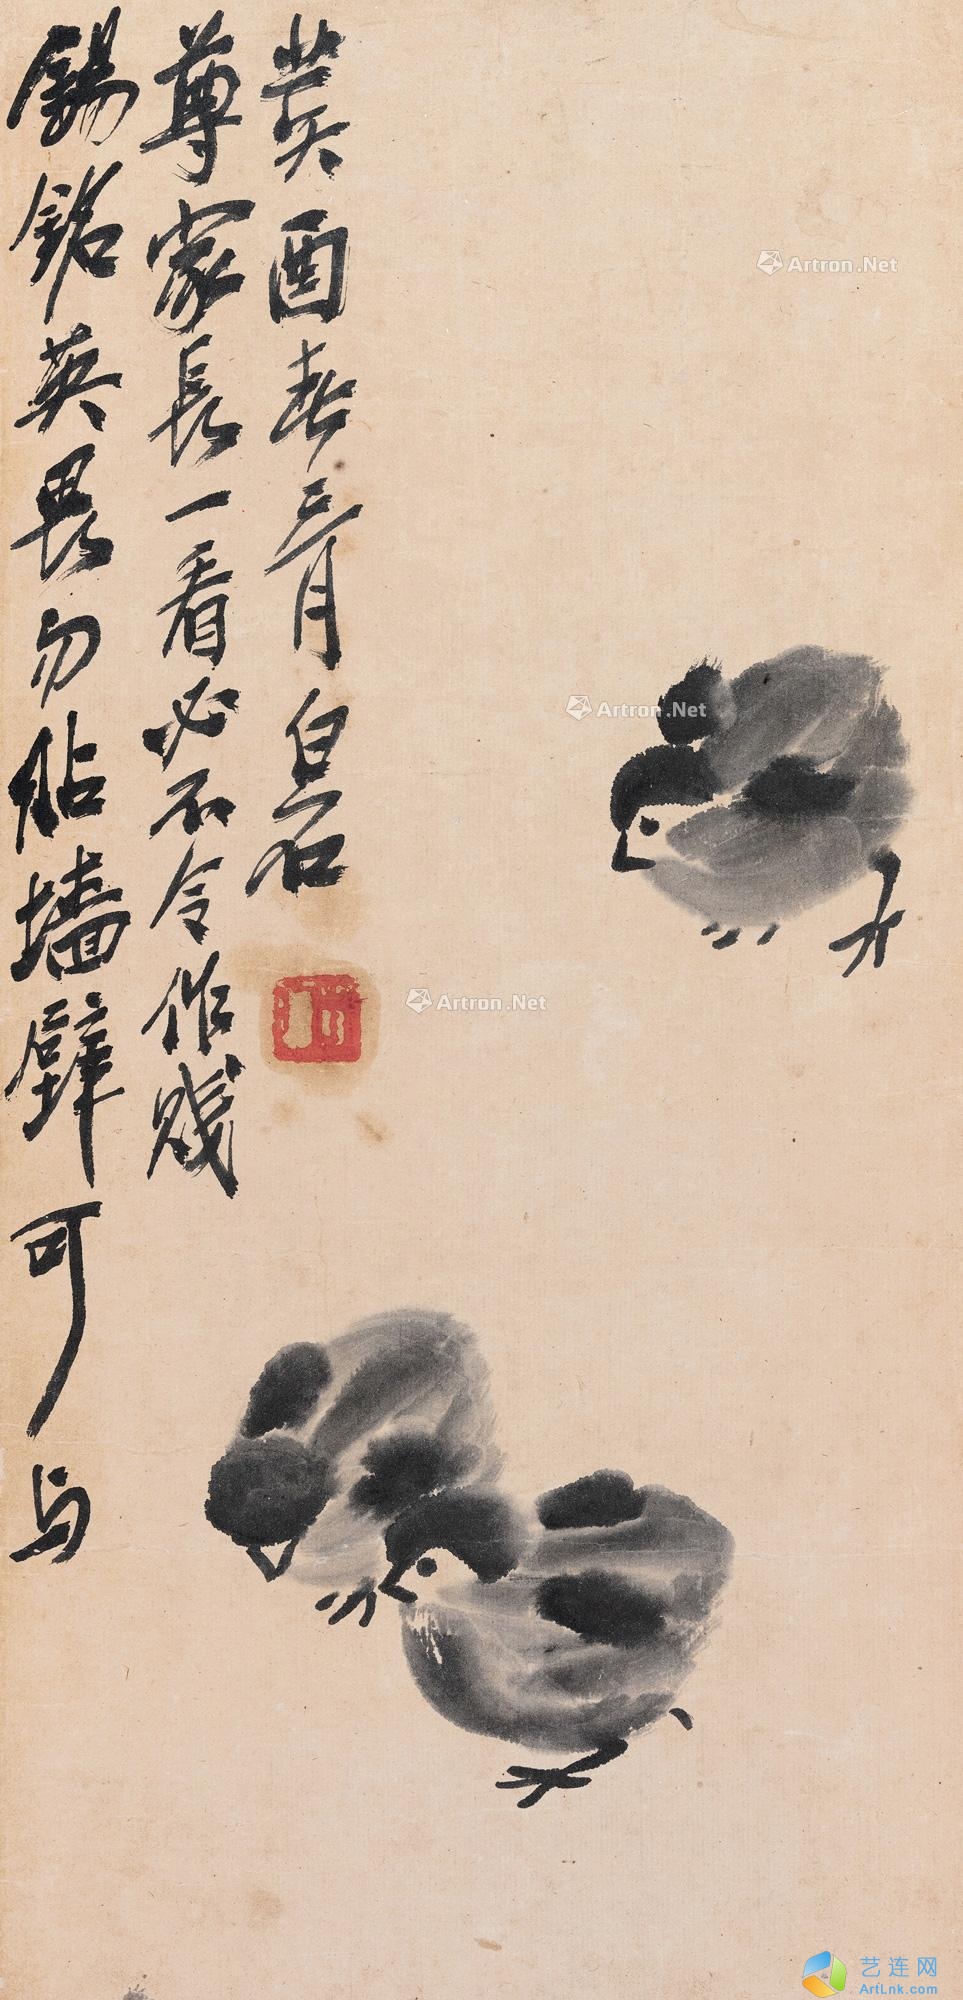 錫銘英畏勿貼墻壁可与
尊家長一看必不令作賤
癸酉春三月白石
Artron.Net
Artron.Net
Artron.Net
艺连网
ArtLnk.com